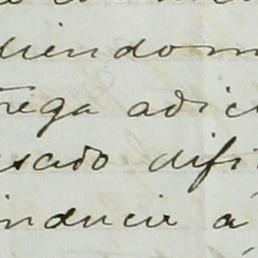 diendom
trega adici
sado difi
inducir á